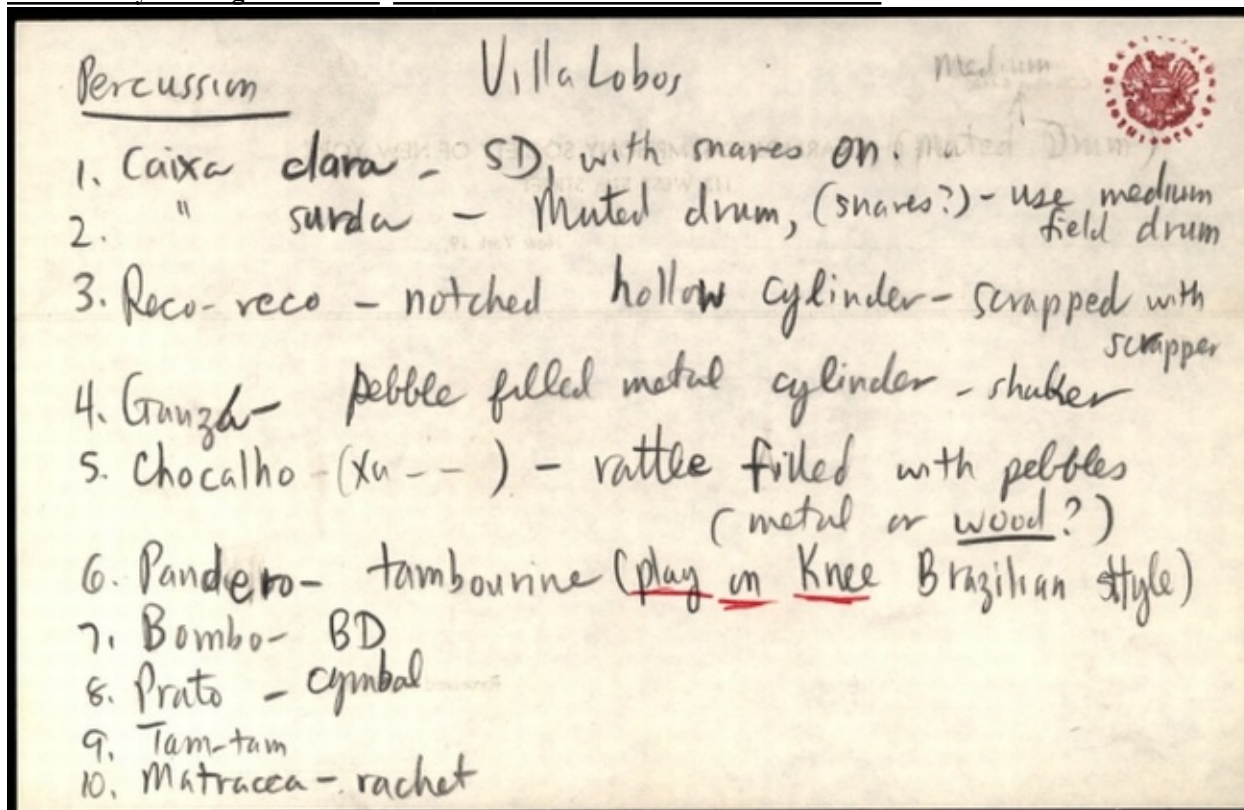 Percussion Villa Lobos
Medium
1. Caixa clara - SD, with snares on. (Muted Drum)
2. " surda - Muted drum, (snares?) - use medium
field drum
3. Reco-reco - notched hollow cylinder - scrapped with
scrapper
4. Ganzá - pebble filled metal cylinder - shaker
5. Chocalho - (xu - - ) - rattle filled with pebbles
(metal or wood?)
6. Pandero - tambourine (play on Knee Brazilian style)
7. Bombo - BD
8. Prato - cymbal
9. Tam-tam
10. Matracca - rachet